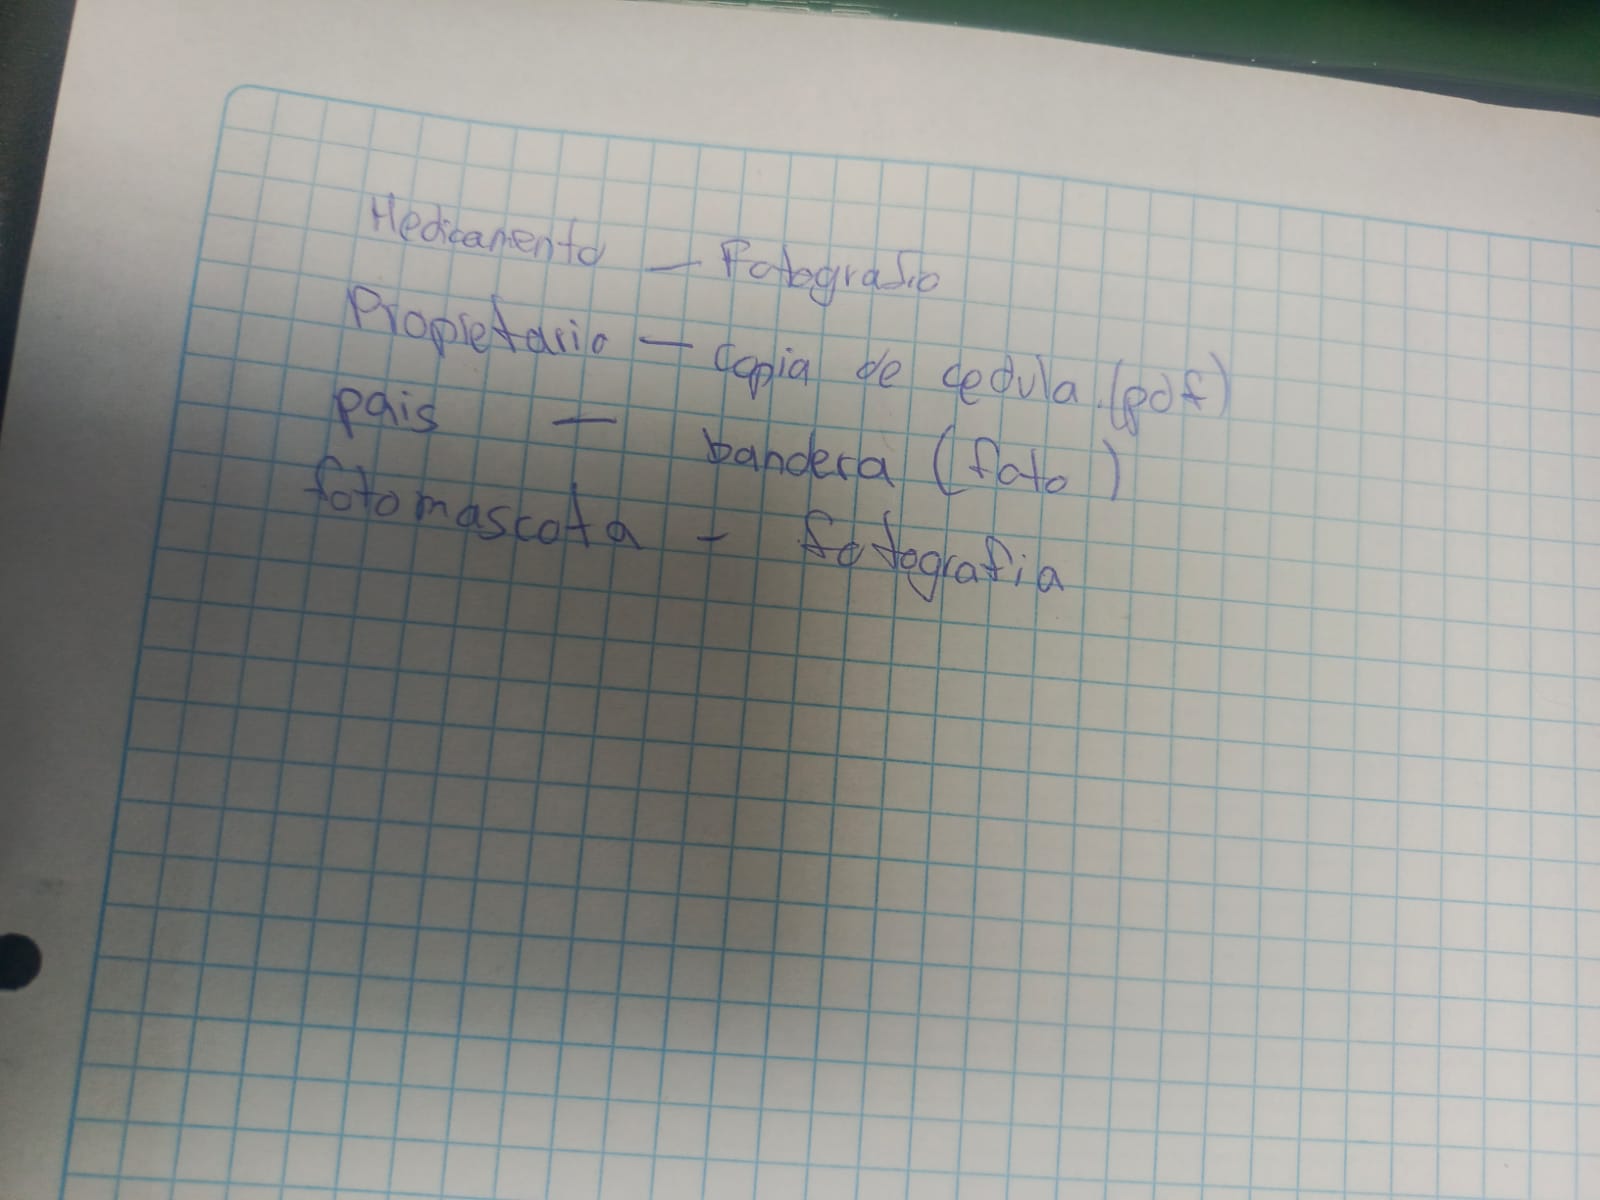 Medicamento - Fotografia
Propietario - copia de cedula (pdf)
pais - bandera (foto)
fotomascota - fotografia